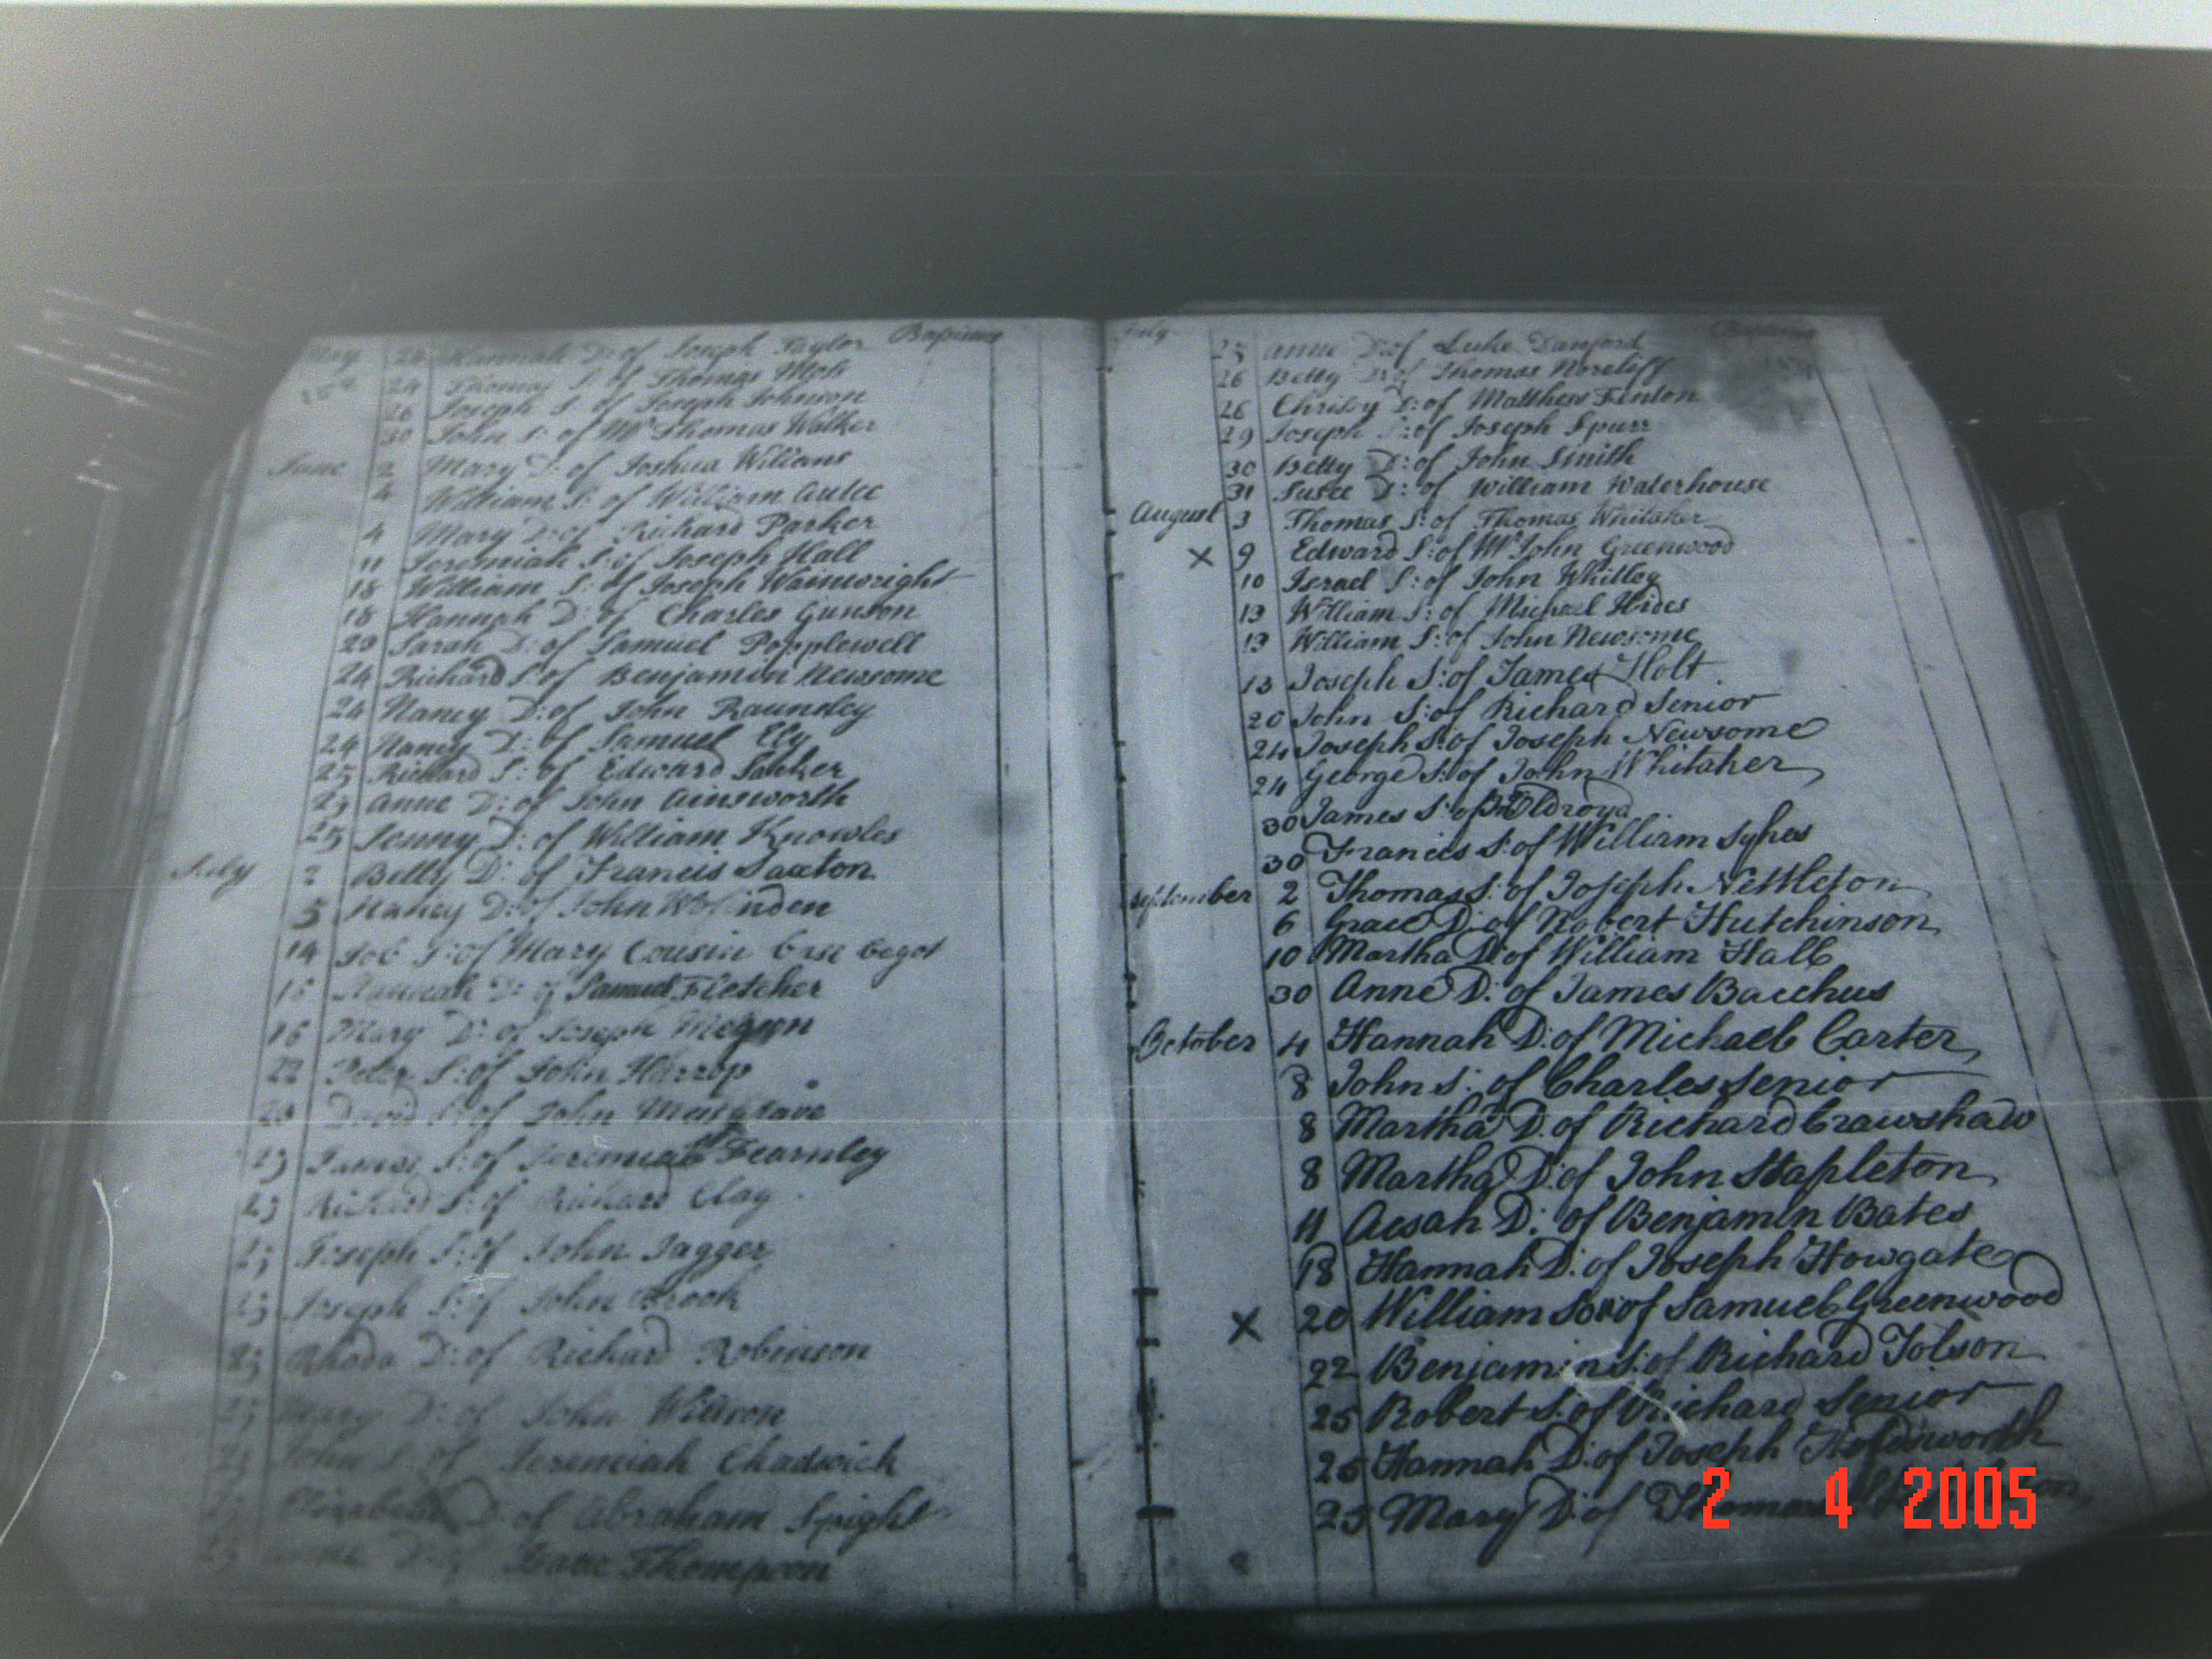 May 24 Hannah D: of Joseph Taylor Baptisms
24 Thomas S: of Thomas
26 Joseph S: of Joseph Johnson
30 John S: of Mr Thomas Walker
June 2 Mary D: of Joshua Willans
4 William S: of William Autee
4 Mary D: of Richard Parker
11 Jeremiah S: of Joseph Hall
18 William S: of Joseph Wainwright
18 Hannah D: of Charles Gunson
20 Sarah D: of Samuel Popplewell
24 Richard S: of Benjamin Newsome
24 Nancy D: of John Raunsley
24 Nancy D: of Samuel Ely
25 Richard S: of Edward
25 Anne D: of John Ainsworth
25 Jenny D: of William Knowles
July 2 Betty D: of Francis Saxton
5 Nancy D: of John
14 Job S: of Mary Cousin base begot
Hannah D: of Samuel Fletcher
16 Mary D: of Joseph
22 Peter S: of John Harrop
David S: of John Musgrave
25 James S: of Jeremiah Fearnley
25 Richard S: of Richard Clay
25 Joseph S: of John Jagger
25 Joseph S: of John Brook
25 Rhoda D: of Richard Robinson
25 Mary D: of John Wilson
25 John S: of Jeremiah Chadwick
25 Elizabeth D: of Abraham Spight
25 Anne D: of Isaac Thompson
July 25 Anne D: of Luke Danford Baptisms
26 Betty D: of Thomas Norcliff
26 Christy D: of Matthew Fenton
29 Joseph S: of Joseph Spurr
30 Betty D: of John Smith
31 Susee D: of William Waterhouse
August 3 Thomas S: of Thomas Whitaker
× 9 Edward S: of Mr John Greenwood
10 Israel S: of John Whitley
13 William S: of Michael Hides
13 William S: of John Newsome
13 Joseph S: of James Holt
20 John S: of Richard Senior
24 Joseph S: of Joseph Newsome
24 George S: of John Whitaker
30 James S: of Oldroyd
30 Francis S: of William Sykes
September 2 Thomas S: of Joseph Nettleton
6 Grace D: of Robert Hutchinson
10 Martha D: of William Hall
30 Anne D: of James Bacchus
October 4 Hannah D: of Michael Carter
8 John S: of Charles Senior
8 Martha D: of Richard Crawshaw
8 Martha D: of John Stapleton
11 Acsah D: of Benjamin Bates
18 Hannah D: of Joseph Howgate
× 20 William Son of Samuel Greenwood
22 Benjamin S: of Richard Tolson
25 Robert S: of Richard Senior
25 Hannah D: of Joseph Holdsworth
25 Mary D: of Thomas
2 4 2005